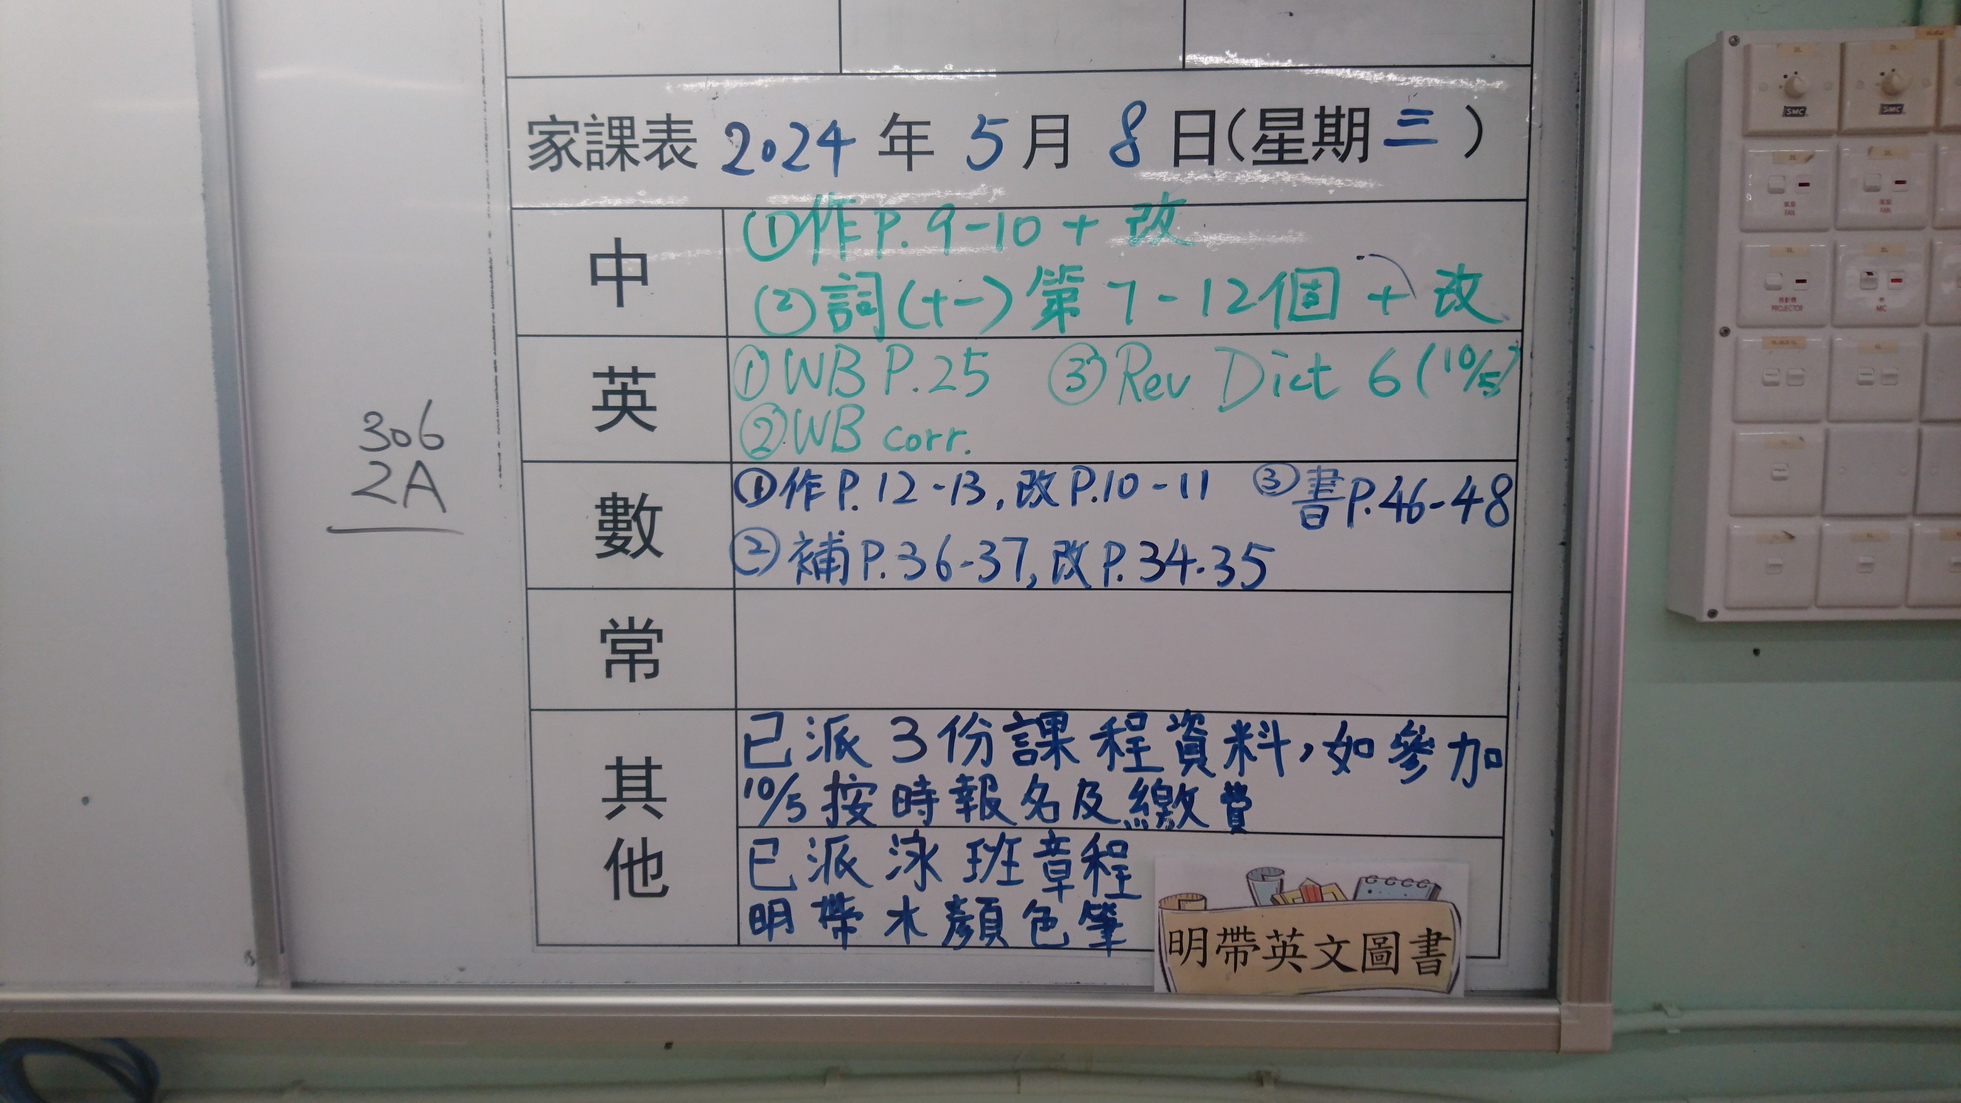 家課表 2024 年 5 月 8 日(星期三)
中
①作P.9-10 + 改
②詞(十一)第7-12個 + 改
英
①WB P.25 ③Rev Dict 6 (10/5)
②WB corr.
306
2A
數
①作P.12-13,改P.10-11 ③書P.46-48
②補P.36-37,改P.34-35
常
其他
已派3份課程資料,如參加
10/5按時報名及繳費
已派泳班章程
明帶水顏色筆
明帶英文圖書
SMC
SMC
FAN
FAN
PROJECTOR
MIC